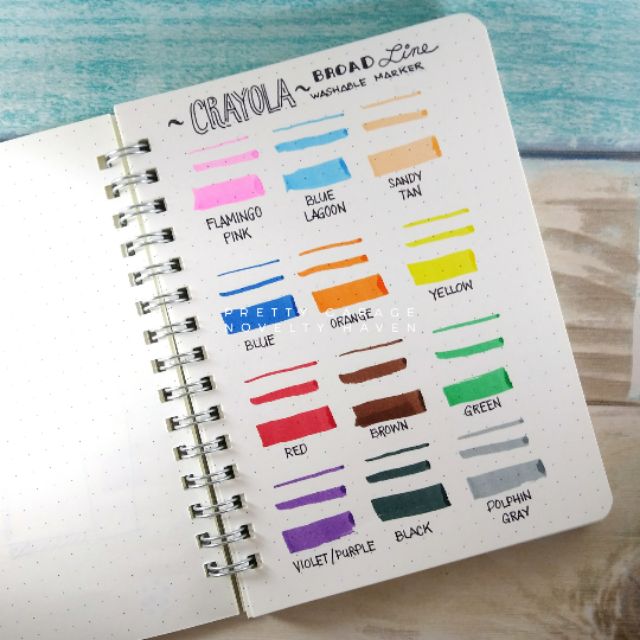 ~ CRAYOLA ~ BROAD Line
WASHABLE MARKER
FLAMINGO
PINK
BLUE
LAGOON
SANDY
TAN
BLUE
ORANGE
YELLOW
PRETTY GARAGE
NOVELTY HAVEN
RED
BROWN
GREEN
VIOLET/PURPLE
BLACK
DOLPHIN
GRAY